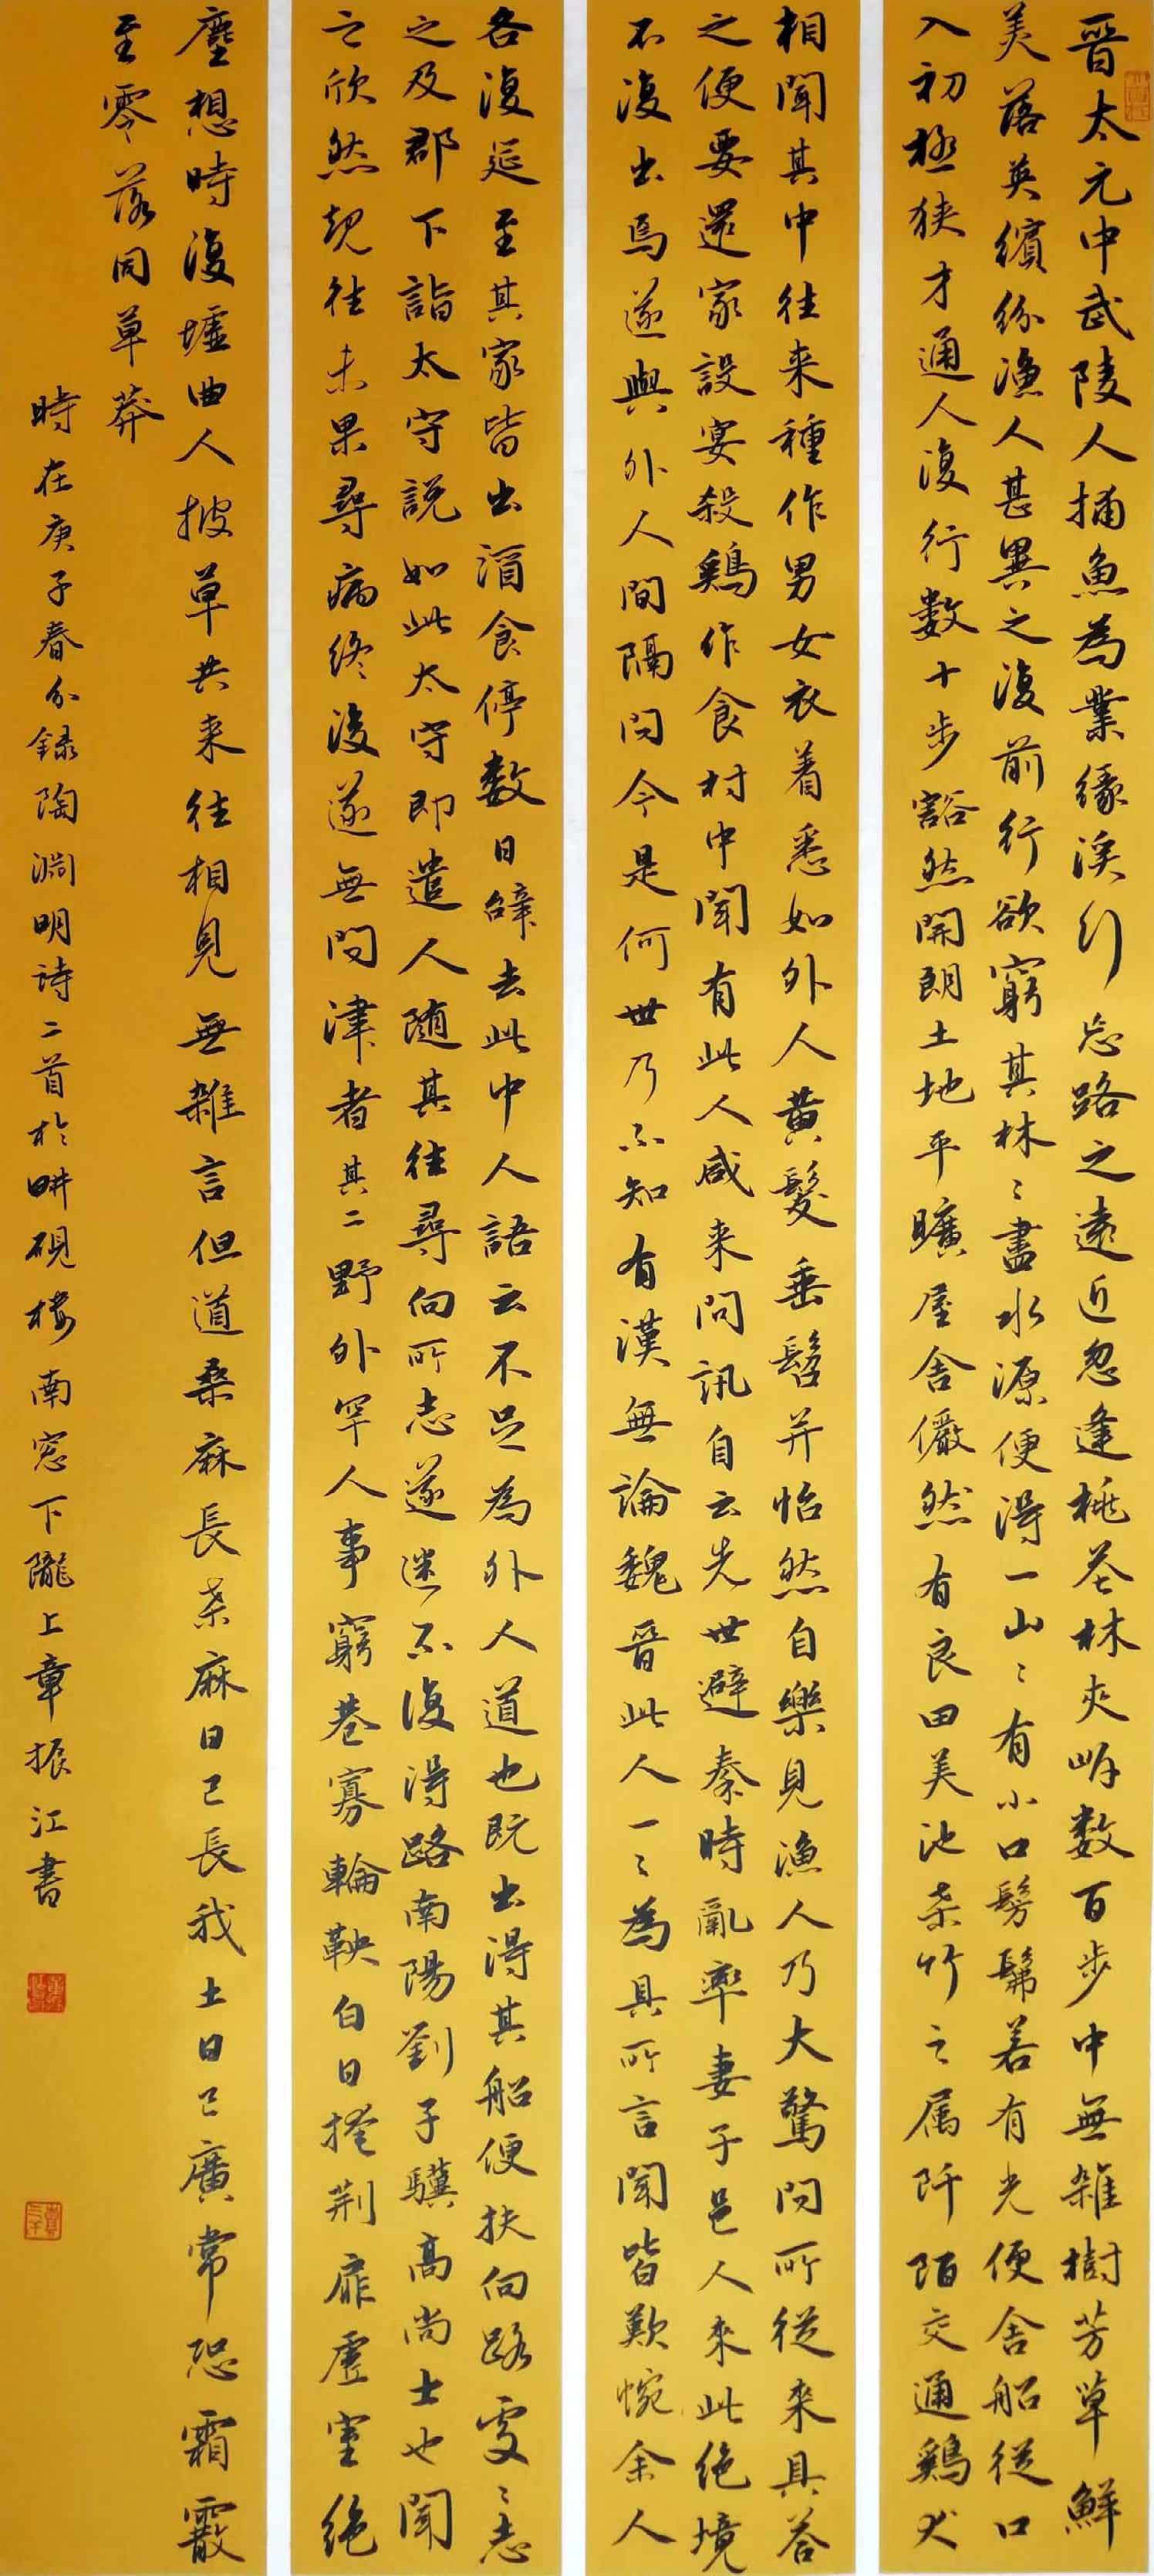 晋太元中武陵人捕魚為業緣溪行忘路之遠近忽逢桃花林夾岸数百步中無雜樹芳草鮮
美落英繽紛漁人甚異之復前行欲窮其林〻盡水源便得一山〻有小口髣髴若有光便舍船從口
入初極狹才通人復行数十步豁然開朗土地平曠屋舍儼然有良田美池桑竹之属阡陌交通鷄犬
相聞其中往来種作男女衣着悉如外人黄髮垂髫并怡然自樂見漁人乃大驚問所從来具答
之便要還家設宴殺鷄作食村中聞有此人咸来問訊自云先世避秦時亂率妻子邑人來此绝境
不復出焉遂與外人間隔问今是何世乃不知有漢無論魏晋此人一〻為具所言聞皆歎惋余人
各復延至其家皆出酒食停数日辞去此中人語云不足為外人道也既出得其船便扶向路處〻志
之及郡下詣太守説如此太守即遣人随其往尋向所志遂迷不復得路南陽劉子驥高尚士也聞
之欣然規往未果尋病终後遂無问津者其二野外罕人事窮巷寡輪鞅白日掩荆扉虚室绝
塵想時復墟曲人披草共来往相見無雜言但道桑麻長桑麻日已長我土日已廣常恐霜霰
至零落同草莽
時在庚子春分録陶淵明诗二首於畊硯樓南窓下隴上章振江書